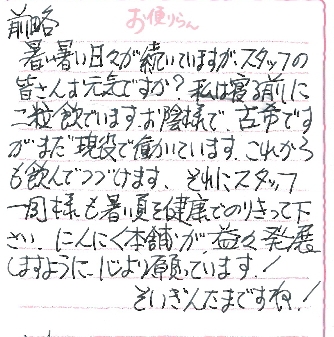 お便りらん
前略
暑い暑い日々が続いていますが、スタッフの
皆さんは元気ですか?私は寝る前に
二粒飲んでいます。お陰様で古希です
がまだ現役で働いています。これから
も飲んでつづけます。それにスタッフ
一同様も暑い夏を健康でのりきって下
さい。にんにく本舗が益々発展
しますように心より願っています!
そいぎんたまですね!